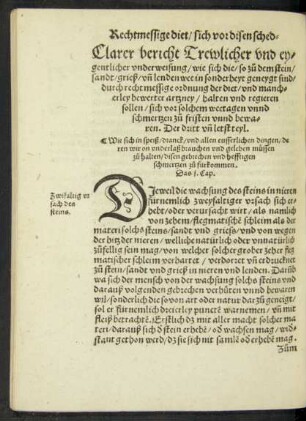 Rechtmessige diet/ sich vor disen sched-
Clarer bericht Trewlicher vnd ey-
gentlicher vnderweisung/ wie sich die/ so zů dem stein/
sandt/ grieß/ vñ lendenwee in sonderheyt geneygt sind/
durch recht messige ordnung der diet/ vnd manch-
erley bewerter artzney/ halten vnd regieren
sollen/ sich vor solchem weetagen vnnd
schmertzen zů fristen vnnd bewa-
ren. Der dritt vñ letst teyl.
¶ Wie sich in speiß/ tranck/ vnd allen eusserlichen dingen/ de
ren wir on vnderlaß brauchen vnd geleben müssen
zů halten/ disen gebrechen vnd hefftigen
schmertzen zů fürkommen.
Das j. Cap.
Zweifaltig vr
sach des
steins.
DJeweil die wachsung des steins in nieren
fürnemlich zweyfaltiger vrsach sich er-
hebt/ oder verursacht wirt/ als namlich
von zehem flegmatischẽ schleim als der
materi solchs steins/ sandt vnd grieß/ vnd von wegen
der hitz der nieren/ welche natürlich oder vnnatürlich
zůfellig sein mag/ von welcher solcher grober zeher fleg
matischer schleim verhartet/ verdorret vñ verdrucknet
zů stein/ sandt vnd grieß in nieren vnd lenden. Darũb
wa sich der mensch von der wachsung solchs steins vnd
darauß volgenden gebrechen verhüten vnnd bewaren
wil/ sonderlich die so von art oder natur darzů geneigt/
sol er fürnemlich dreierley punctẽ warnemen/ vñ mit
fleiß betrachtẽ. Erstlich dz mit aller macht solcher ma
teri/ darauß sich ď stein erhebt/ od wachsen mag/ wid-
stant gethon werd/ dz sie sich nit samlẽ od erhebẽ mag.
Zům